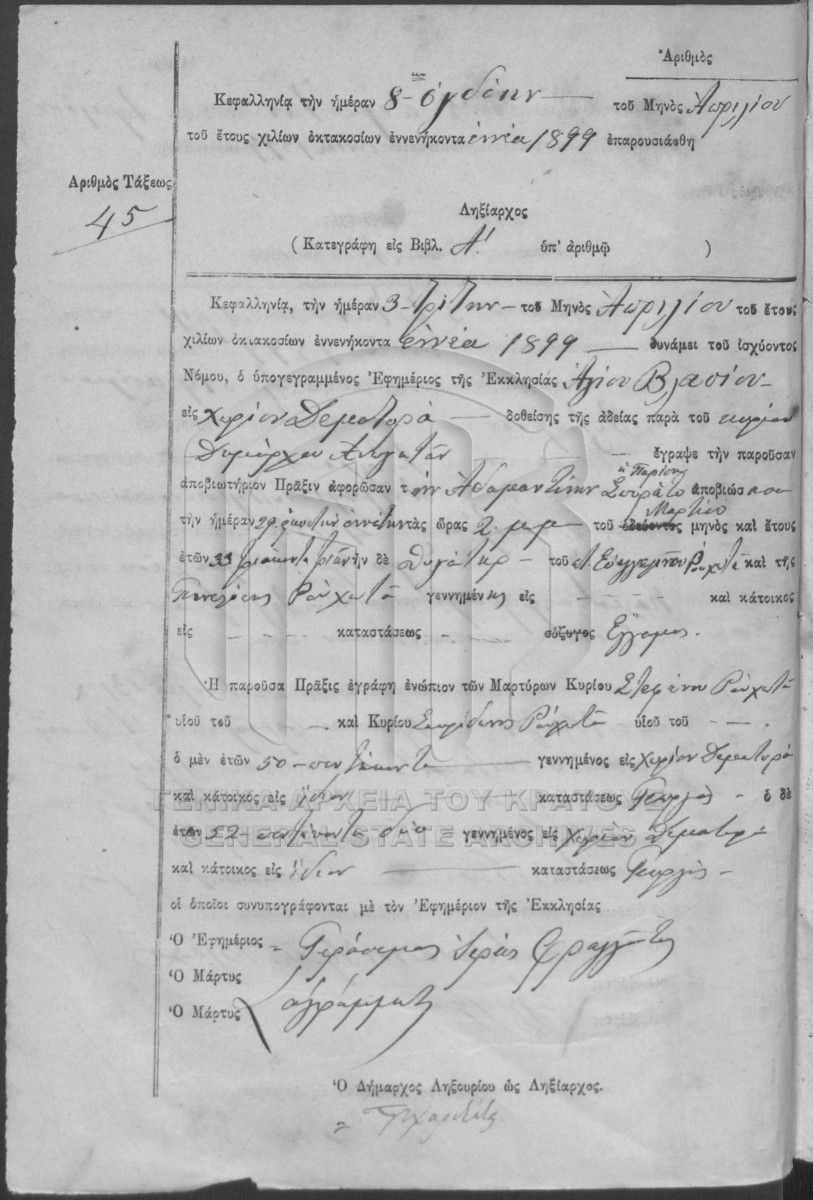 Ἀριθμὸς
Κεφαλληνίᾳ τὴν ἡμέραν 8 - ὀγδόην — τοῦ Μηνὸς Ἀπριλίου
τοῦ ἔτους χιλίων ὀκτακοσίων ἐννενήκοντα ἐννέα 1899 ἐπαρουσιάσθη
Ἀριθμὸς Τάξεως
45
Ληξίαρχος
( Κατεγράφη εἰς Βιβλ. Α! ὑπ' ἀριθμῷ )
Κεφαλληνίᾳ, τὴν ἡμέραν 3 - Τρίτην - τοῦ Μηνὸς Ἀπριλίου τοῦ ἔτους
χιλίων ὀκτακοσίων ἐννενήκοντα ἐννέα 1899 — δυνάμει τοῦ ἰσχύοντος
Νόμου, ὁ ὑπογεγραμμένος Ἐφημέριος τῆς Ἐκκλησίας Ἁγίου Βλασίου -
εἰς Χωρίον Δεματορά — δοθείσης τῆς ἀδείας παρὰ τοῦ κυρίου
Δημάρχου - - - ἔγραψε τὴν παροῦσαν
ἀποβιωτήριον Πρᾶξιν ἀφορῶσαν τὴν Ἀδαμαντίνην ἀποβιώσ
Μαρτίου
τὴν ἡμέραν 29 εἰκοστὴν ἐννάτην τὰς ὥρας 2 μ.μ. τοῦ μηνὸς καὶ ἔτους
ἐτῶν 33 τριάκοντα τριῶν ἦν δὲ θυγάτηρ - τοῦ Εὐαγγελινοῦ Ρουχωτᾶ καὶ τῆς
Πηνελόπης Ρουχωτᾶ γεννημένης εἰς - - καὶ κάτοικος
εἰς - - - - καταστάσεως - - - σύζυγος Ἔγγαμος.
Ἡ παροῦσα Πρᾶξις ἐγράφη ἐνώπιον τῶν Μαρτύρων Κυρίου Στεφάνου Ρουχωτᾶ
υἱοῦ τοῦ - - καὶ Κυρίου Σπυρίδωνος Ρουχωτᾶ υἱοῦ τοῦ - - .
ὁ μὲν ἐτῶν 50 - πεντήκοντα — γεννημένος εἰς Χωρίον Δεματορά
καὶ κάτοικος εἰς ἴδιον — καταστάσεως Γεωργὸς - ὁ δὲ
ΓΕΝΙΚΑ ΑΡΧΕΙΑ ΤΟΥ ΚΡΑΤΟΥΣ
ἐτῶν 52 πεντήκοντα δύο γεννημένος εἰς Χωρίον Δεματορά
GENERAL STATE ARCHIVES
καὶ κάτοικος εἰς ἴδιον — καταστάσεως Γεωργὸς -
οἱ ὁποῖοι συνυπογράφονται μὲ τὸν Ἐφημέριον τῆς Ἐκκλησίας
Ὁ Ἐφημέριος = Γεράσιμος Ἱερεὺς
Ὁ Μάρτυς
Ὁ Μάρτυς ἀγράμματοι
Ὁ Δήμαρχος Ληξουρίου ὡς Ληξίαρχος.